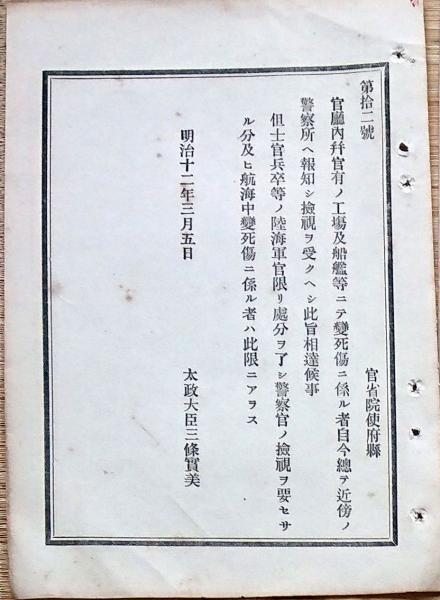 第拾二號
官省院使府縣
官廳內幷官有ノ工塲及船艦等ニテ變死傷ニ係ル者自今總テ近傍ノ
警察所ヘ報知シ撿視ヲ受クヘシ此旨相達候事
但士官兵卒等ノ陸海軍官限リ處分ヲ了シ警察官ノ撿視ヲ要セサ
ル分及ヒ航海中變死傷ニ係ル者ハ此限ニアラス
明治十二年三月五日
太政大臣三條實美